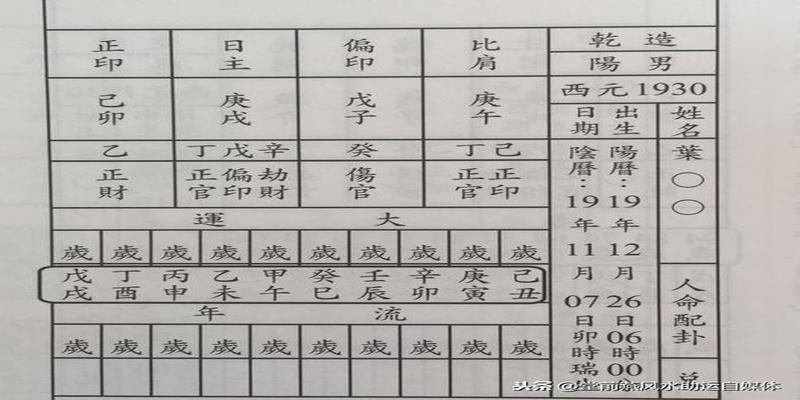 乾造
陽男
西元1930
姓名
葉○○
人命配卦
出生日期
陽曆:19年12月26日06時00
陰曆:19年11月07日卯時瑞
比肩
偏印
日主
正印
庚午
戊子
庚戌
己卯
丁己
癸
丁戊辛
乙
正官 正印
傷官
正官 偏印 劫財
正財
大運
歲 歲 歲 歲 歲 歲 歲 歲 歲 歲
己丑
庚寅
辛卯
壬辰
癸巳
甲午
乙未
丙申
丁酉
戊戌
流年
歲 歲 歲 歲 歲 歲 歲 歲 歲 歲
头条 @ 风水助运自媒体